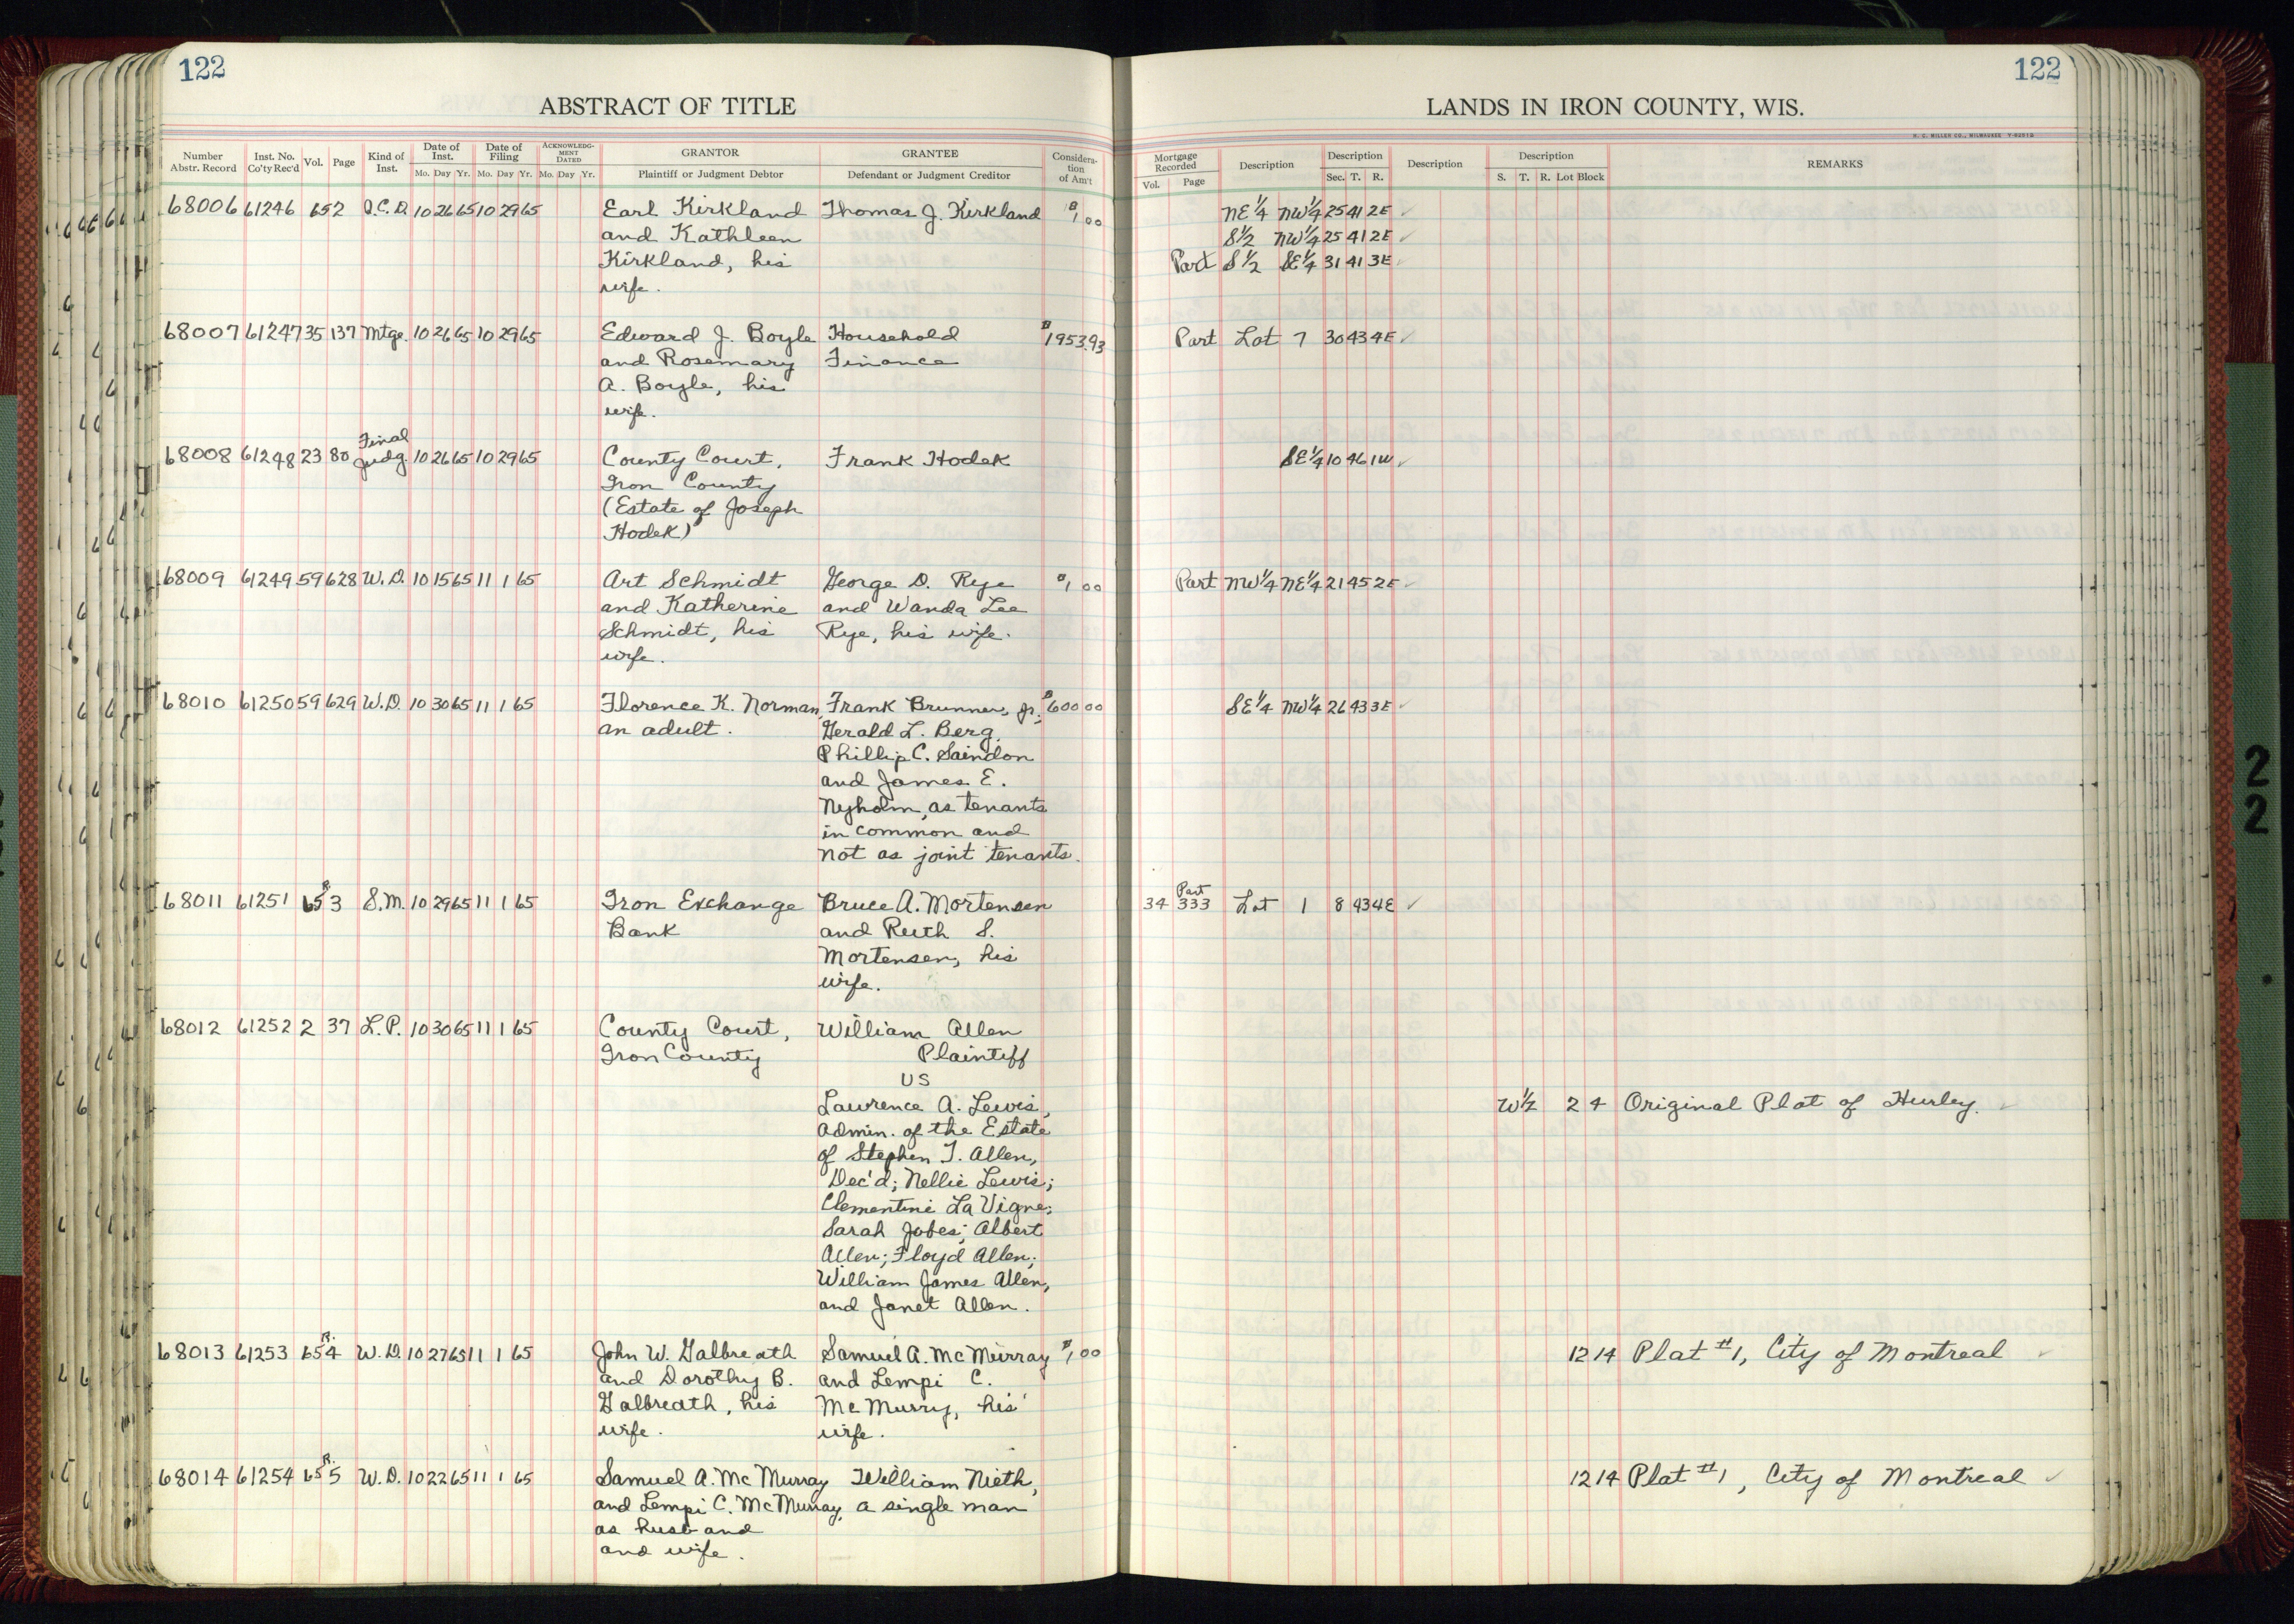 122
122
ABSTRACT OF TITLE
LANDS IN IRON COUNTY, WIS.
H. C. MILLER CO., MILWAUKEE
Number Abstr. Record | Inst. No. Co'ty Rec'd | Vol. | Page | Kind of Inst. | Date of Inst. Mo. Day Yr. | Date of Filing Mo. Day Yr. | ACKNOWLEDG-MENT DATED Mo. Day Yr. | GRANTOR Plaintiff or Judgment Debtor | GRANTEE Defendant or Judgment Creditor | Considera-tion of Am't
Mortgage Recorded Vol. Page | Description | Description Sec. T. R. | Description | Description S. T. R. Lot Block | REMARKS
68006 61246 65 2 Q.C.D. 10 26 65 10 29 65 Earl Kirkland Thomas J. Kirkland $1.00 NE¼ NW¼ 25 41 2E ✓
and Kathleen S½ NW¼ 25 41 2E ✓
Kirkland, his Part S½ SE¼ 31 41 3E ✓
wife.
68007 61247 35 137 Mtge. 10 26 65 10 29 65 Edward J. Boyle Household $1953.93 Part Lot 7 30 43 4E ✓
and Rosemary Finance
A. Boyle, his
wife.
68008 61248 23 80 Final Judg. 10 26 65 10 29 65 County Court, Frank Hodek SE¼ 10 46 1W ✓
Iron County
(Estate of Joseph
Hodek)
68009 61249 59 628 W.D. 10 15 65 11 1 65 Art Schmidt George D. Rye $1 00 Part NW¼ NE¼ 21 45 2E ✓
and Katherine and Wanda Lee
Schmidt, his Rye, his wife.
wife.
68010 61250 59 629 W.D. 10 30 65 11 1 65 Florence K. Norman, Frank Brunner, Jr.; $600 00 SE¼ NW¼ 26 43 3E ✓
an adult. Gerald L. Berg,
Phillip C. Saindon
and James E.
Nyholm, as tenants
in common and
not as joint tenants.
68011 61251 65 R. 3 S.M. 10 29 65 11 1 65 Iron Exchange Bruce A. Mortensen 34 333 Part Lot 1 8 43 4E ✓
Bank and Ruth S.
Mortensen, his
wife.
68012 61252 2 37 L.P. 10 30 65 11 1 65 County Court, William Allen
Iron County Plaintiff
VS
Lawrence A. Lewis, W½ 2 4 Original Plat of Hurley. ✓
Admin. of the Estate
of Stephen T. Allen,
Dec'd; Nellie Lewis;
Clementine La Vigne;
Sarah Jobes; Albert
Allen; Floyd Allen;
William James Allen,
and Janet Allen.
68013 61253 65 R. 4 W.D. 10 27 65 11 1 65 John W. Galbreath Samuel A. McMurray $1,00 12 14 Plat #1, City of Montreal ✓
and Dorothy B. and Lempi C.
Galbreath, his McMurry, his
wife. wife.
68014 61254 65 R. 5 W.D. 10 22 65 11 1 65 Samuel A. McMurray William Nieth, 12 14 Plat #1, City of Montreal ✓
and Lempi C. McMurray, a single man
as husband
and wife.